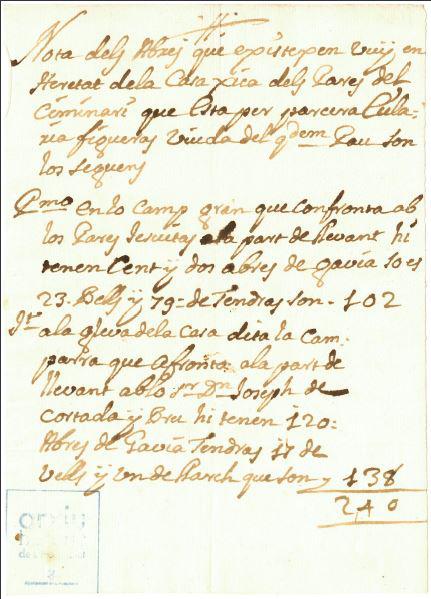 Nota dels Abres que existexen vuy en
Heretat dela Casa xica dels Pares del
Ciminari que Esta per parcera Eula-
ria figueras Viuda del qdem Pau son
los seguens
Pmo en lo Camp gran que confronta ab
los Pares Jesuitas ala part de llevant hi
tenen Cent y dos abres de gavia so es
23. Vells y 79= de Tendras son - 102
Itt ala
casa dita la Cam-
parra que afronta ala part de
llevant ab lo Sr Dn Joseph de
Cortada y Bru hi tenen 120=
Abres de Gavia Tendras 17 de
vells y Un de March que son 138
240
arxiu